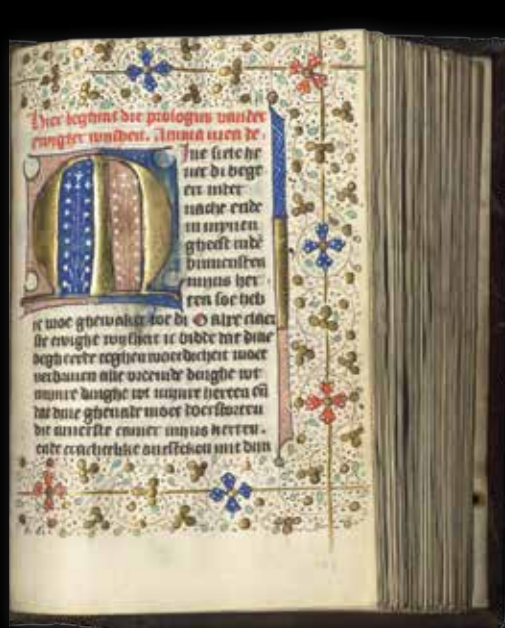 Hier beghint die prologus vander
ewigher wijsheit. Anima mea de
Mine siele he
uet di bege
ert inder
nacht ende
in mynen
gheest inde
binnensten
mijns her
ten soe heb
ic vroe ghewaket toe di O alre claer
ste ewighe wijsheit ic bidde dat dine
begheerde teghenwoerdicheit moet
alle vreemde dinghe wt
mijnre herten en
dat dine ghenade moet doerstorten
die binnerste camer mijns herten.
ende crachtelike ontstekен mit dijn